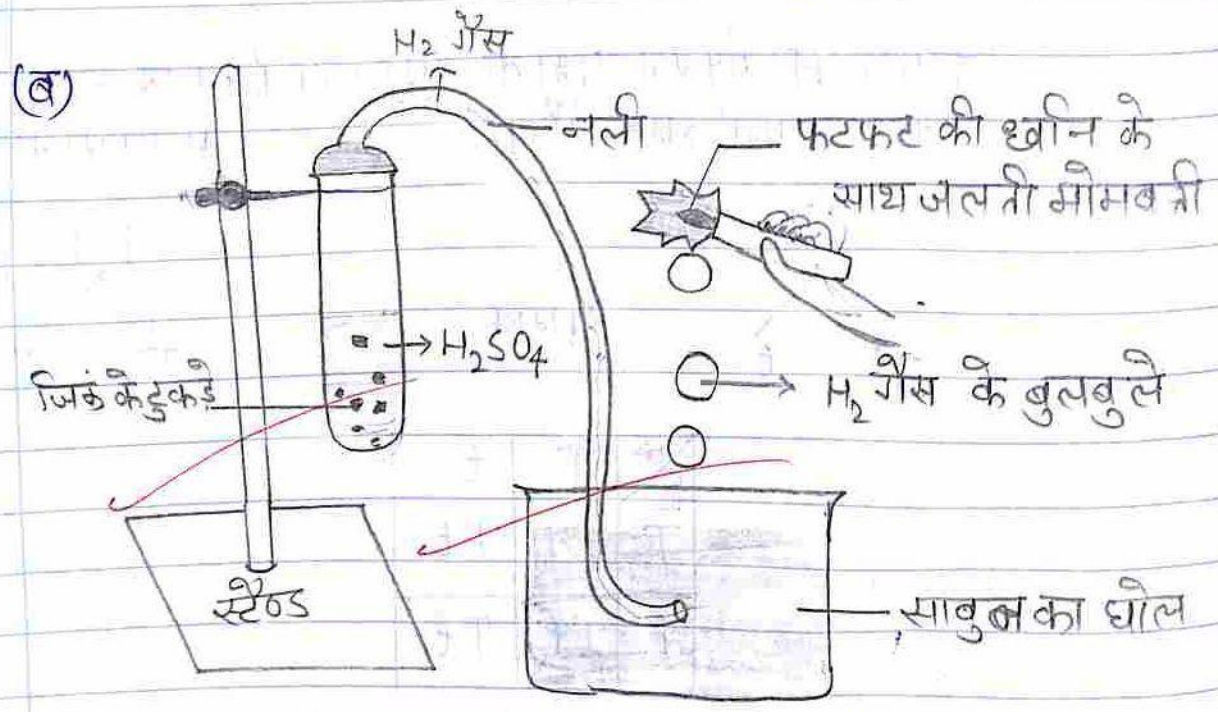 (ब)
H₂ गैस
नली
फटफट की ध्वनि के
साथ जलती मोमबत्ती
→ H₂SO₄
जिकं के टुकड़े
→ H₂ गैस के बुलबुले
स्टैण्ड
साबुन का घोल